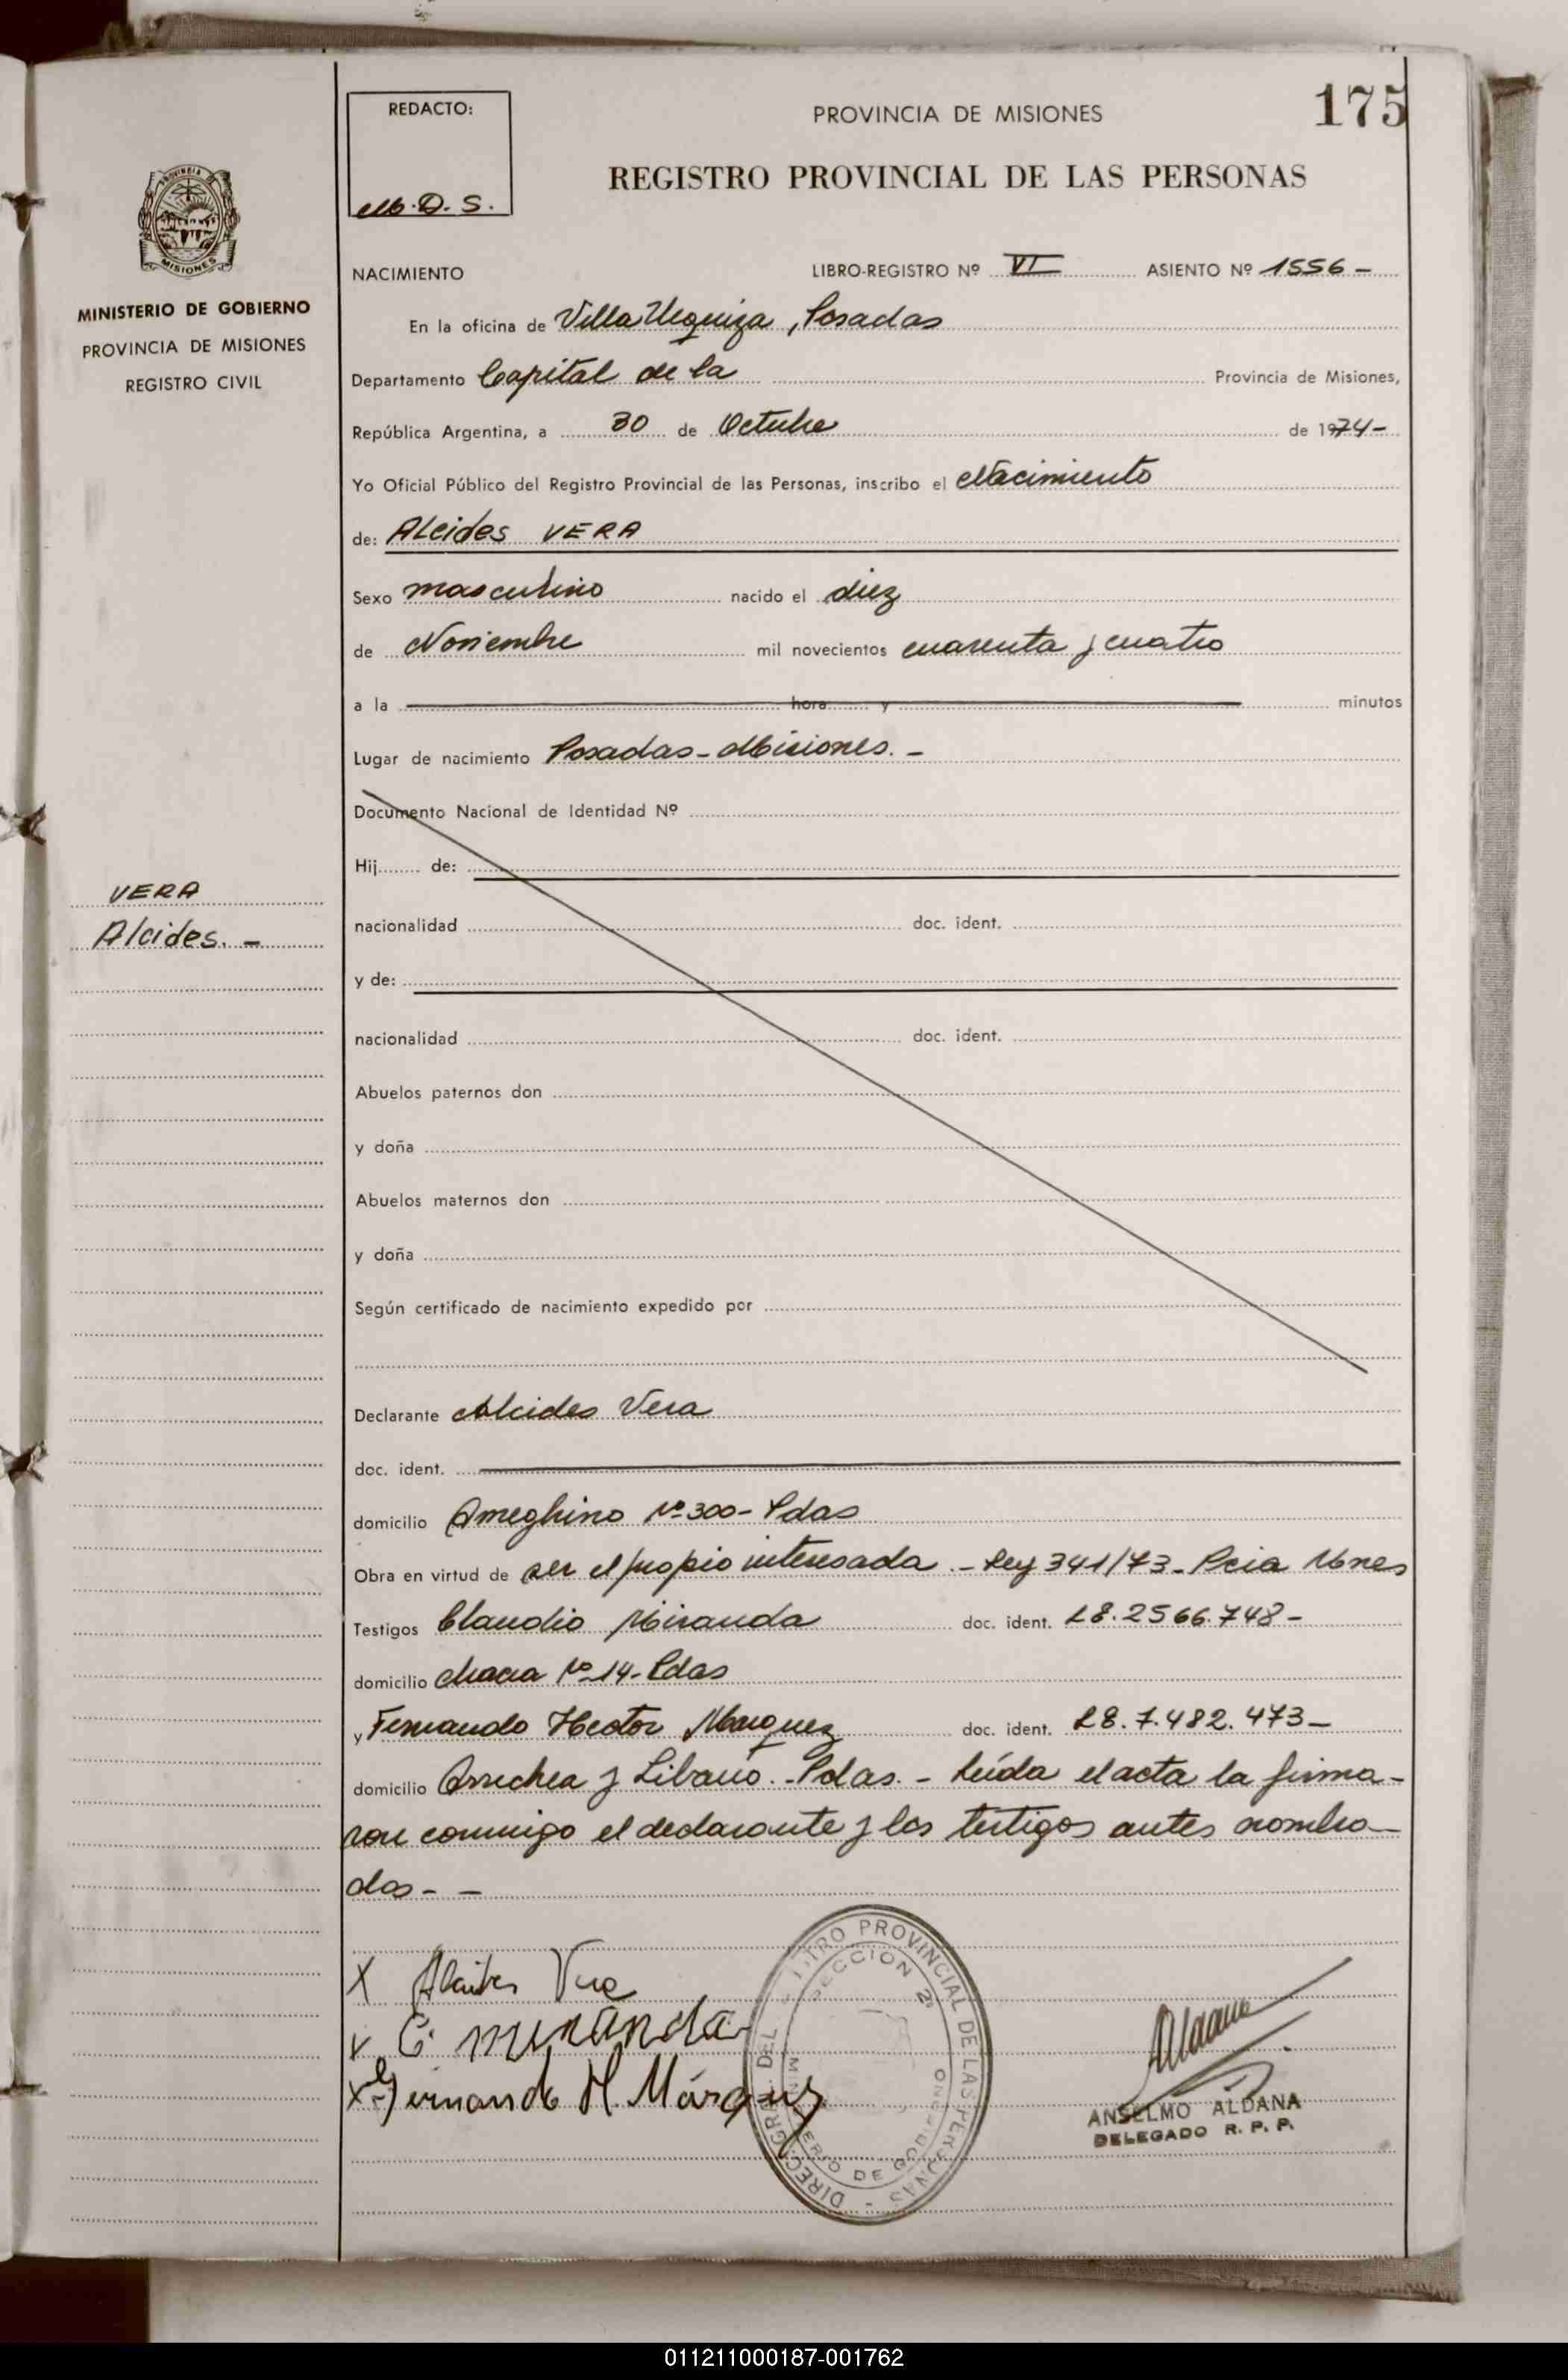 175
REDACTO:
M.D.S.
PROVINCIA DE MISIONES
REGISTRO PROVINCIAL DE LAS PERSONAS
MISIONES
MINISTERIO DE GOBIERNO
PROVINCIA DE MISIONES
REGISTRO CIVIL
VERA
Alcides. -
NACIMIENTO LIBRO-REGISTRO Nº VI ASIENTO Nº 1556 -
En la oficina de Villa Urquiza, Posadas
Departamento Capital de la Provincia de Misiones,
República Argentina, a 30 de Octubre de 1974-
Yo Oficial Público del Registro Provincial de las Personas, inscribo el Nacimiento
de: Alcides VERA
Sexo masculino nacido el diez
de Noviembre mil novecientos cuarenta y cuatro
a la hora y minutos
Lugar de nacimiento Posadas - Misiones. -
Documento Nacional de Identidad Nº
Hij de:
nacionalidad doc. ident.
y de:
nacionalidad doc. ident.
Abuelos paternos don
y doña
Abuelos maternos don
y doña
Según certificado de nacimiento expedido por
Declarante Alcides Vera
doc. ident.
domicilio Ameghino Nº 300 - Pdas
Obra en virtud de ser el propio interesada. - Ley 341/73 - Pcia Mnes
Testigos Claudio Miranda doc. ident. L8.2566.748-
domicilio Chacra Nº 14 - Pdas
y Fernando Hector Marquez doc. ident. L8.7.482.473-
domicilio Arrechea y Libano. - Pdas. - Leída el acta la firma-
ron conmigo el declarante y los testigos antes nombra-
dos - -
X Alcides Vera
X C. miranda
X Fernando H. Márquez
DIREC. GRAL. DEL REGISTRO PROVINCIAL DE LAS PERSONAS -
SECCION 2ª
MINISTERIO DE GOBIERNO
Aldana
ANSELMO ALDANA
DELEGADO R. P. P.
011211000187-001762